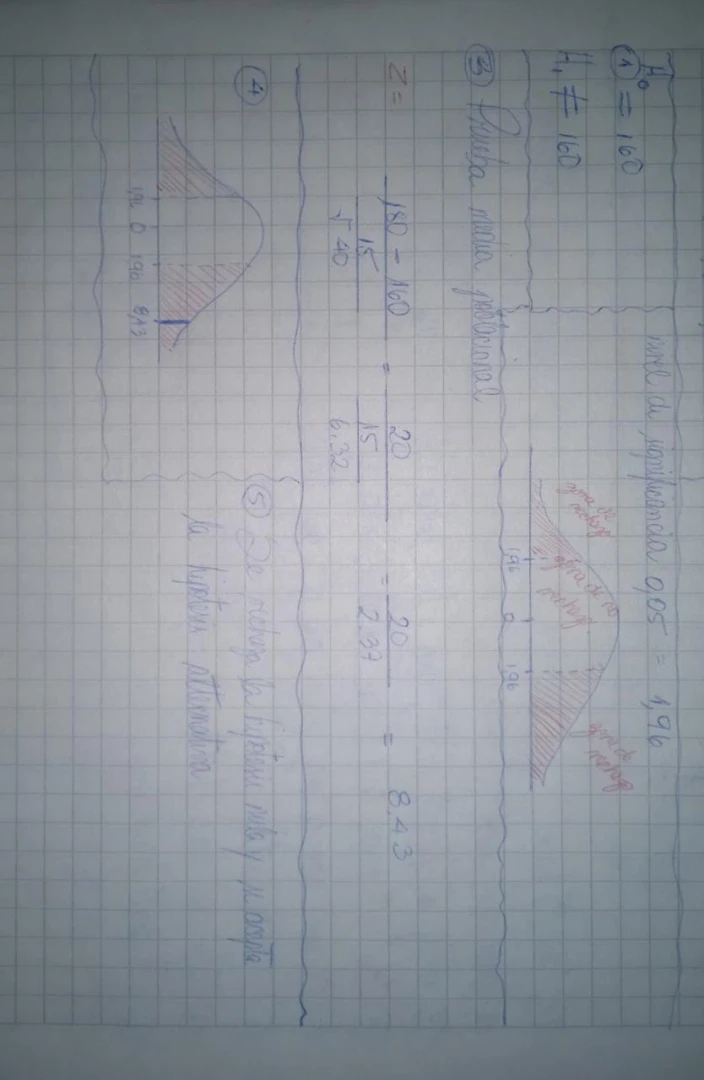 H₀
① = 160
H₁ ≠ 160
nivel de significancia 0,05 = 1,96
zona de rechazo
zona de no rechazo
zona de rechazo
1,96 0 1,96
③ Prueba media poblacional
Z = 180 - 160 = 20 = 20 = 8.43
15 15 2.37
√40 6.32
④
1,96 0 1,96 8,43
⑤ Se rechaza la hipótesis nula y se acepta
la hipótesis alternativa